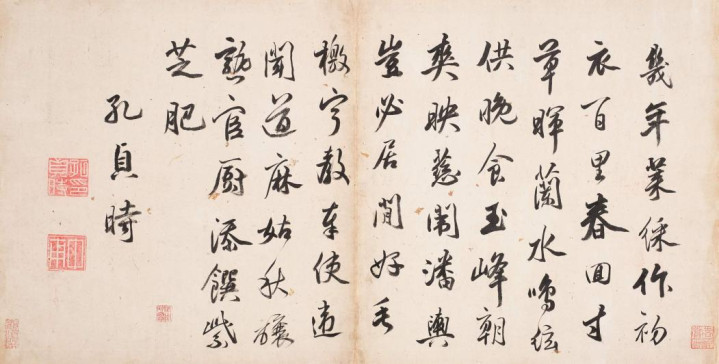 幾年萊綵作初
衣百里春回寸
草暉蘭水鳴絃
供晚食玉峰朝
爽映慈闈潘輿
豈必居閒好毛
檄寧教奉使違
聞道麻姑秋釀
熟官厨添饌紫
芝肥
孔貞時